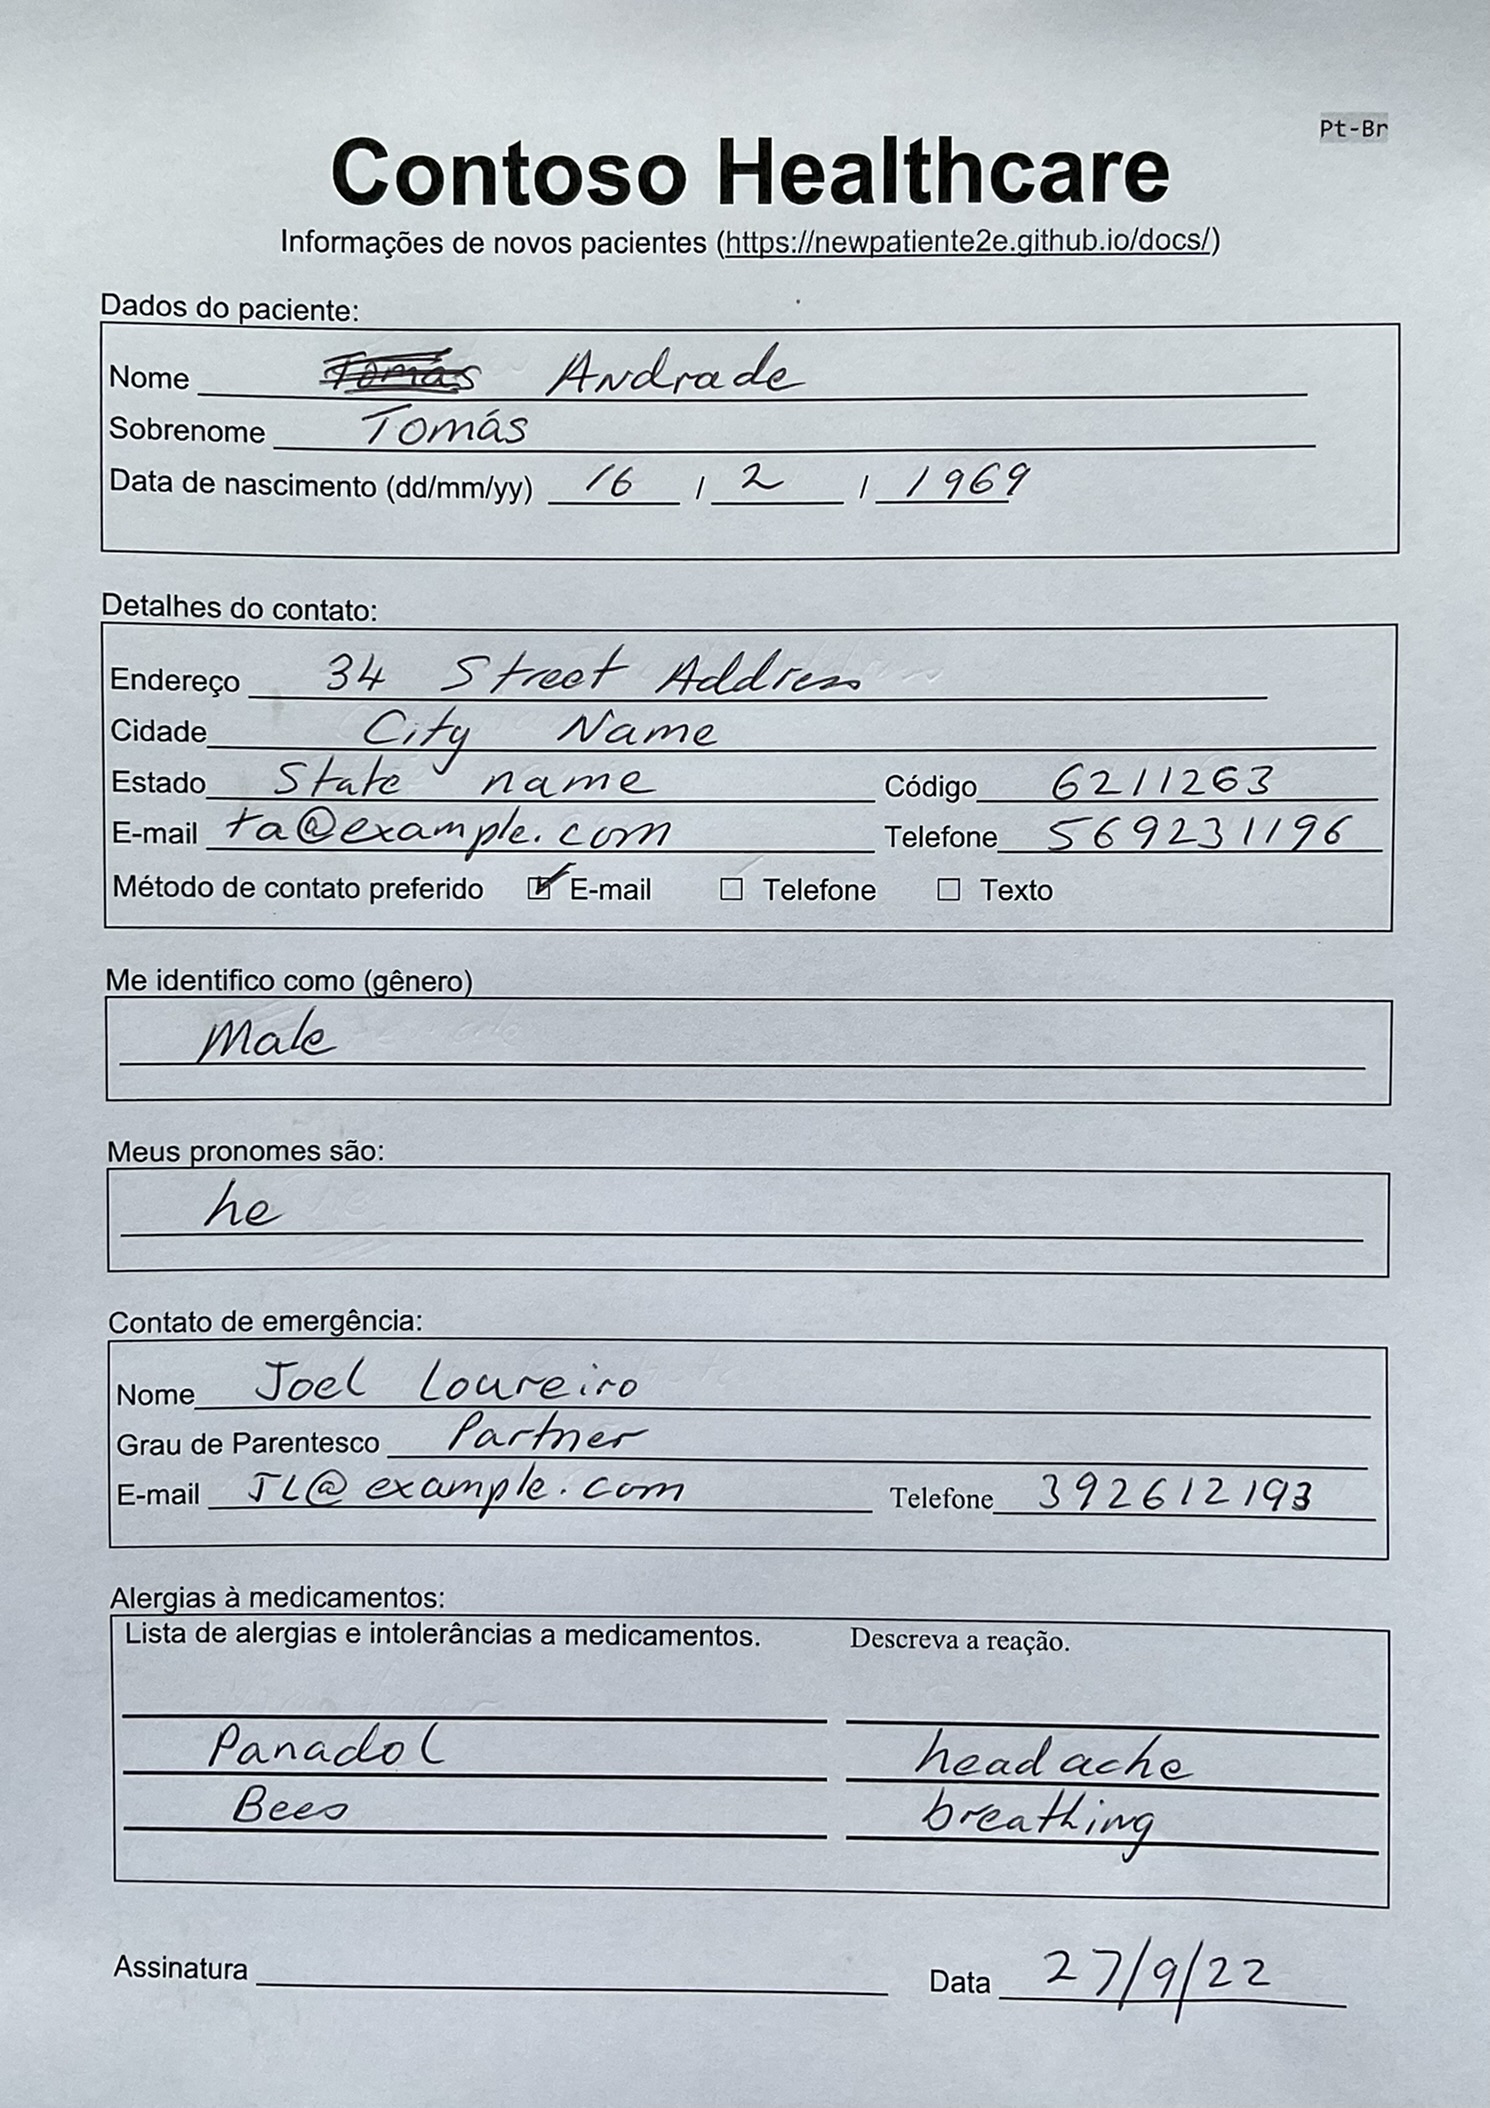 Pt-Br
Contoso Healthcare
Informações de novos pacientes (https://newpatiente2e.github.io/docs/)
Dados do paciente:
Nome Tomás Andrade
Sobrenome Tomás
Data de nascimento (dd/mm/yy) 16 / 2 / 1969
Detalhes do contato:
Endereço 34 Street Address
Cidade City Name
Estado State name Código 6211263
E-mail ta@example.com Telefone 569231196
Método de contato preferido E-mail Telefone Texto
Me identifico como (gênero)
Male
Meus pronomes são:
he
Contato de emergência:
Nome Joel Loureiro
Grau de Parentesco Partner
E-mail JL@example.com Telefone 392612193
Alergias à medicamentos:
Lista de alergias e intolerâncias a medicamentos. Descreva a reação.
Panadol headache
Bees breathing
Assinatura Data 27/9/22